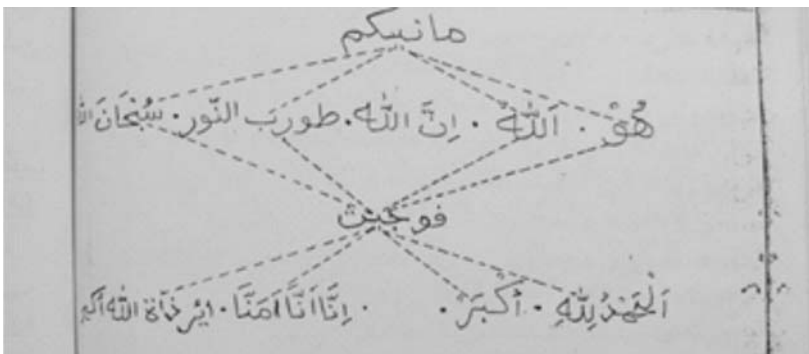 مانيكم
هُوَ . اَللّٰهُ . اِنَّ اللّٰه . طورب النّور . سُبْحَانَ
فوجيت
اَلْحَمْدُ لِلّٰهِ . أَكْبَرْ . اِنَّا اَنَّا اٰمَنَّا . اللّٰه